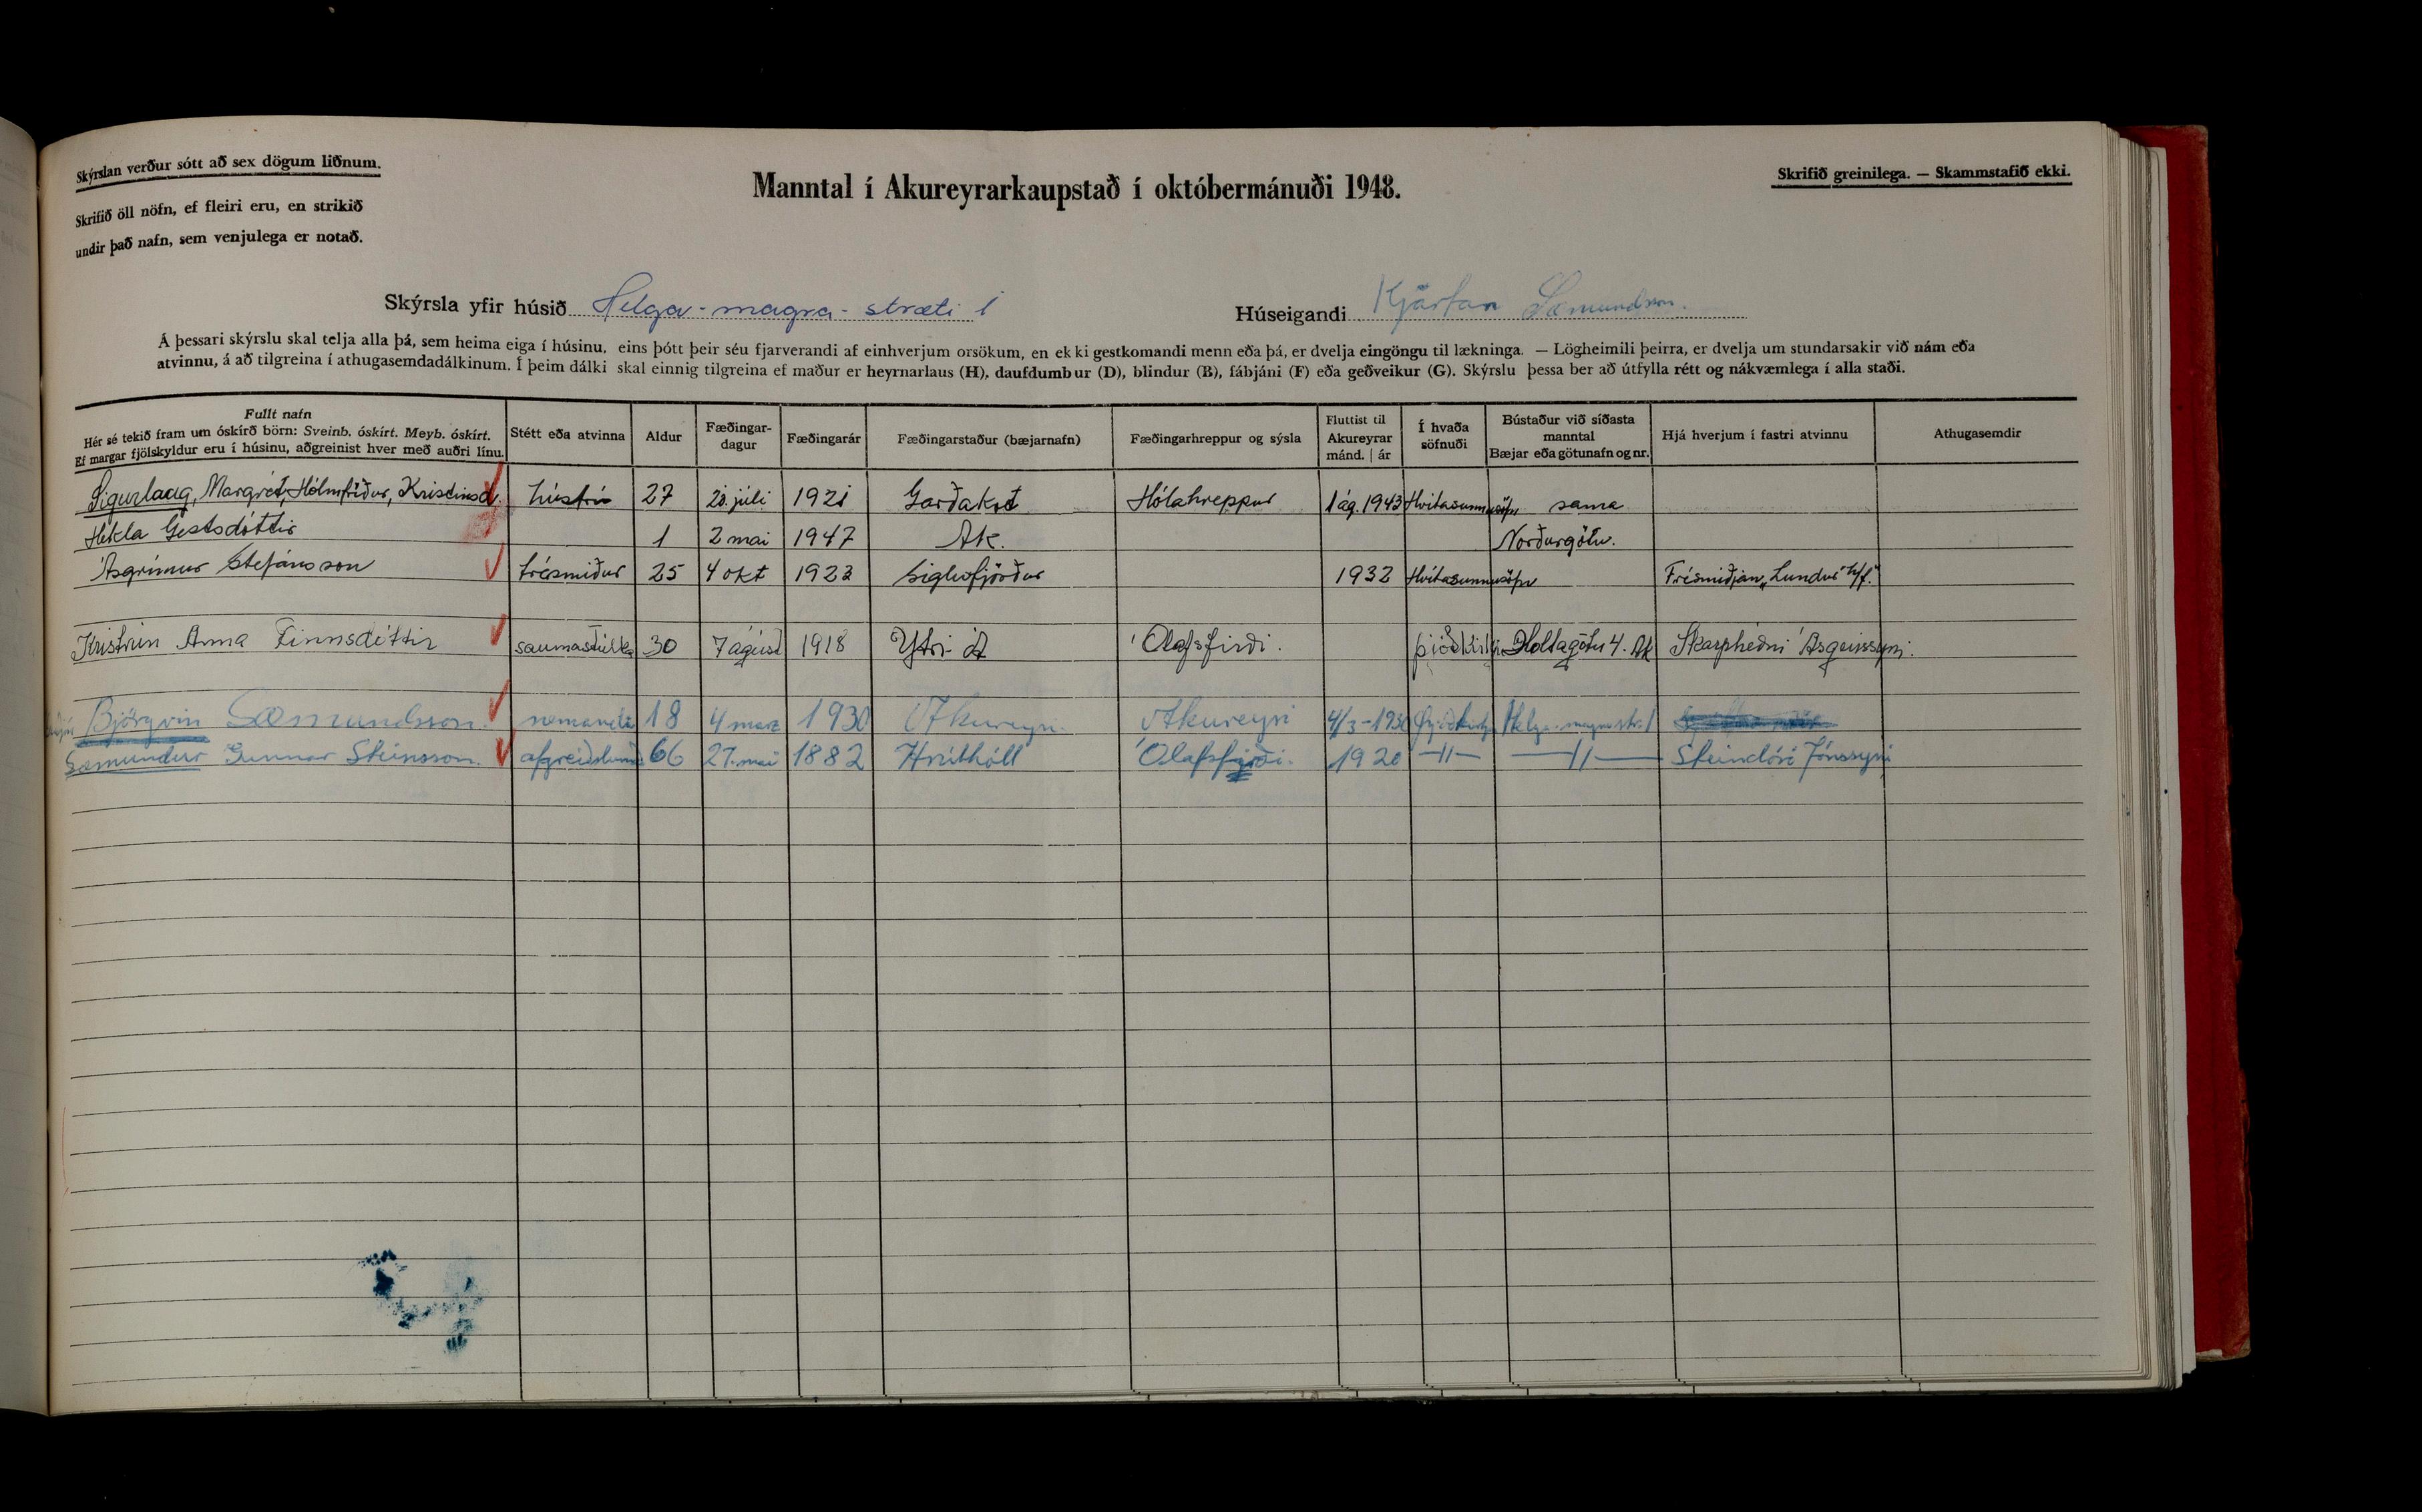 Skýrslan verður sótt að sex dögum liðnum.
Skrifið öll nöfn, ef fleiri eru, en strikið
undir það nafn, sem venjulega er notað.
Manntal í Akureyrarkaupstað í októbermánuði 1948.
Skrifið greinilega. — Skammstafið ekki.
Skýrsla yfir húsið Helga-magra-stræti 1
Húseigandi Kjartan Sæmundsson.
Á þessari skýrslu skal telja alla þá, sem heima eiga í húsinu, eins þótt þeir séu fjarverandi af einhverjum orsökum, en ekki gestkomandi menn eða þá, er dvelja eingöngu til lækninga. — Lögheimili þeirra, er dvelja um stundarsakir við nám eða
atvinnu, á að tilgreina í athugasemdadálkinum. Í þeim dálki skal einnig tilgreina ef maður er heyrnarlaus (H), daufdumbur (D), blindur (B), fábjáni (F) eða geðveikur (G). Skýrslu þessa ber að útfylla rétt og nákvæmlega í alla staði.
Fullt nafn
Hér sé tekið fram um óskírð börn: Sveinb. óskírt. Meyb. óskírt.
Ef margar fjölskyldur eru í húsinu, aðgreinist hver með auðri línu.
Stétt eða atvinna
Aldur
Fæðingar-
dagur
Fæðingarár
Fæðingarstaður (bæjarnafn)
Fæðingarhreppur og sýsla
Fluttist til
Akureyrar
mánd. | ár
Í hvaða
söfnuði
Bústaður við síðasta
manntal
Bæjar eða götunafn og nr.
Hjá hverjum í fastri atvinnu
Athugasemdir
Sigurlaug, Margrét, Hólmfríður, Kristinsd. húsfrú 27 20. júli 1921 Garðakot Hólahreppur 1 ág. 1943 Hvitasunnusöfn sama
Hekla Gestsdóttir 1 2 mai 1947 Ak. Norðurgötu.
Ásgrímur Stefánsson trésmiður 25 4 okt 1923 Siglufjörður 1932 Hvítasunnusöfn Trésmiðjan „Lundur" h/f.
Kristrún Anna Finnsdóttir saumastúlka 30 7 ágúst 1918 Ytri-á Ólafsfirði. þjóðkirkj. Holtagötu 4. Ak Skarphéðni Ásgeirssyni.
Björgvin Sæmundsson. nemandi 18 4 marz 1930 Akureyri Akureyri 4/3-1930 þjóðkirkj Helga-magrastr. 1
Sæmundur Gunnar Steinsson. afgreiðslum 66 27. mai 1882 Hrúthóll Ólafsfirði. 1920 —11— —11— Steindóri Jónssyni